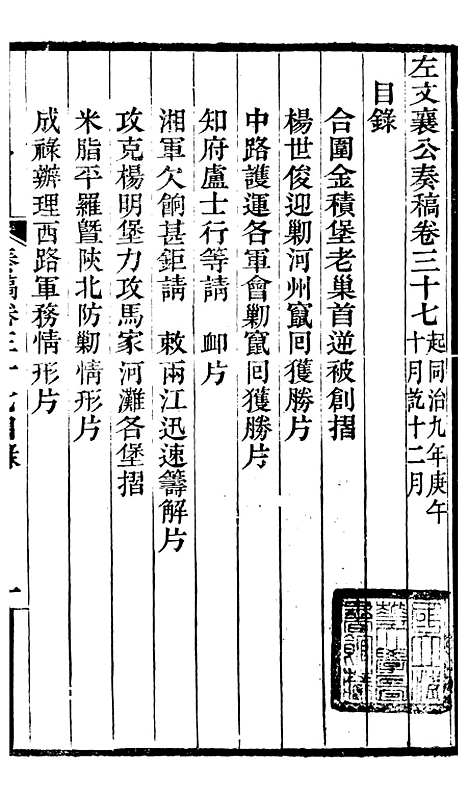 左文襄公奏稿卷三十七起同治九年庚午十月訖十二月
目錄
合圍金積堡老巢首逆被創摺
楊世俊迎勦河州竄回獲勝片
中路護運各軍會勦竄回獲勝片
知府盧士行等請 卹片
湘軍欠餉甚鉅請 敕兩江迅速籌解片
攻克楊明堡力攻馬家河灘各堡摺
米脂平羅暨陝北防勦情形片
成祿辦理西路軍務情形片
奏稿卷三十七目錄 一